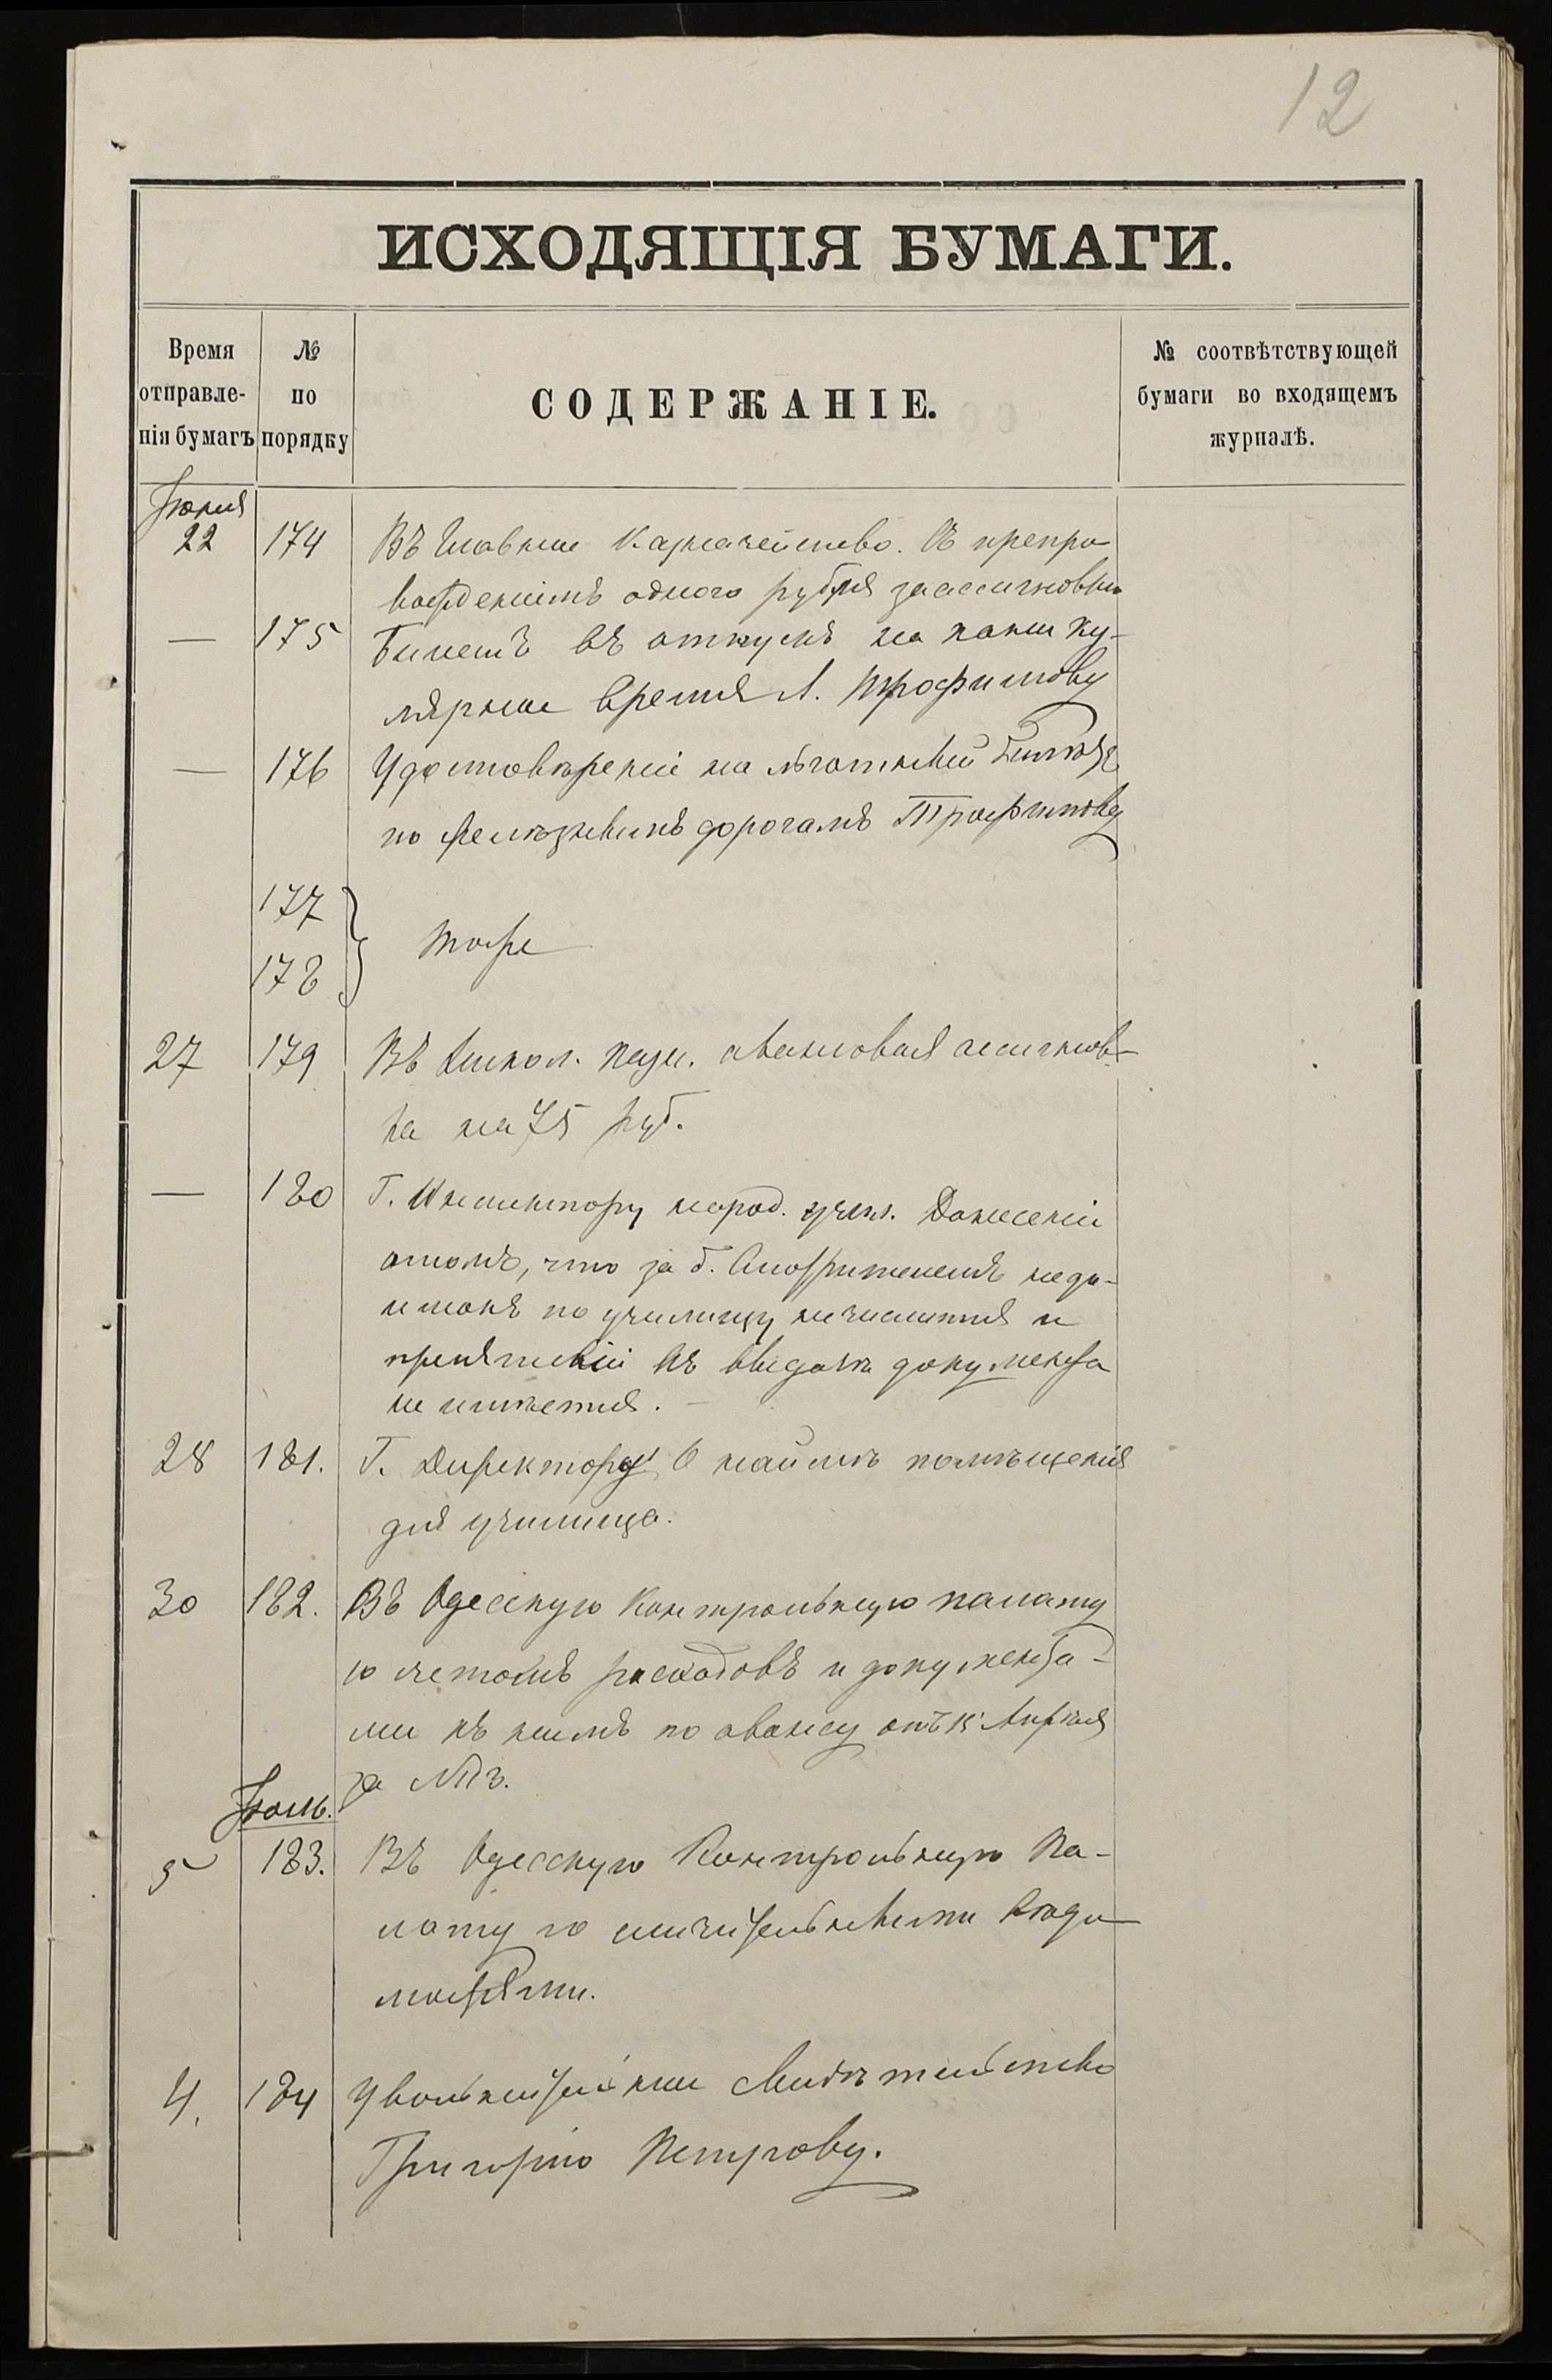 12
ИСХОДЯЩІЯ БУМАГИ.
Время отправленія бумагъ
№ по порядку
СОДЕРЖАНІЕ.
№ соотвѣтствующей бумаги во входящемъ журналѣ.
Іюня
22 174 Въ Главное Казначейство. Съ препро-
вожденіемъ одного рубля за ассигновки
— 175 Билетъ въ отпускъ на канику-
лярное время А. Трофимову
— 176 Удостовѣреніе на льготный билетъ
по желѣзнымъ дорогамъ Трофимову
177
178 } Тоже
27 179 Въ Никол. Казн. авансовая ассигнов-
ка на 75 руб.
— 180 Г. Инспектору народ. учил. Донесеніе
о томъ, что за б. смотрителемъ недо-
имокъ по училищу не числится и
препятствій къ выдачѣ документа
не имѣется. —
28 181. Г. Директору О наймѣ помѣщенія
для училища.
30 182. Въ Одесскую Контрольную палату
со счетомъ расходовъ и документа-
ми къ нимъ по авансу отъ 15 Апрѣля
за №
Іюль.
5 183. Въ Одесскую Контрольную Па-
лату со сличительными вѣдо-
мостями.
4. 184 Увольнительное свидѣтельство
Григорію Петрову.